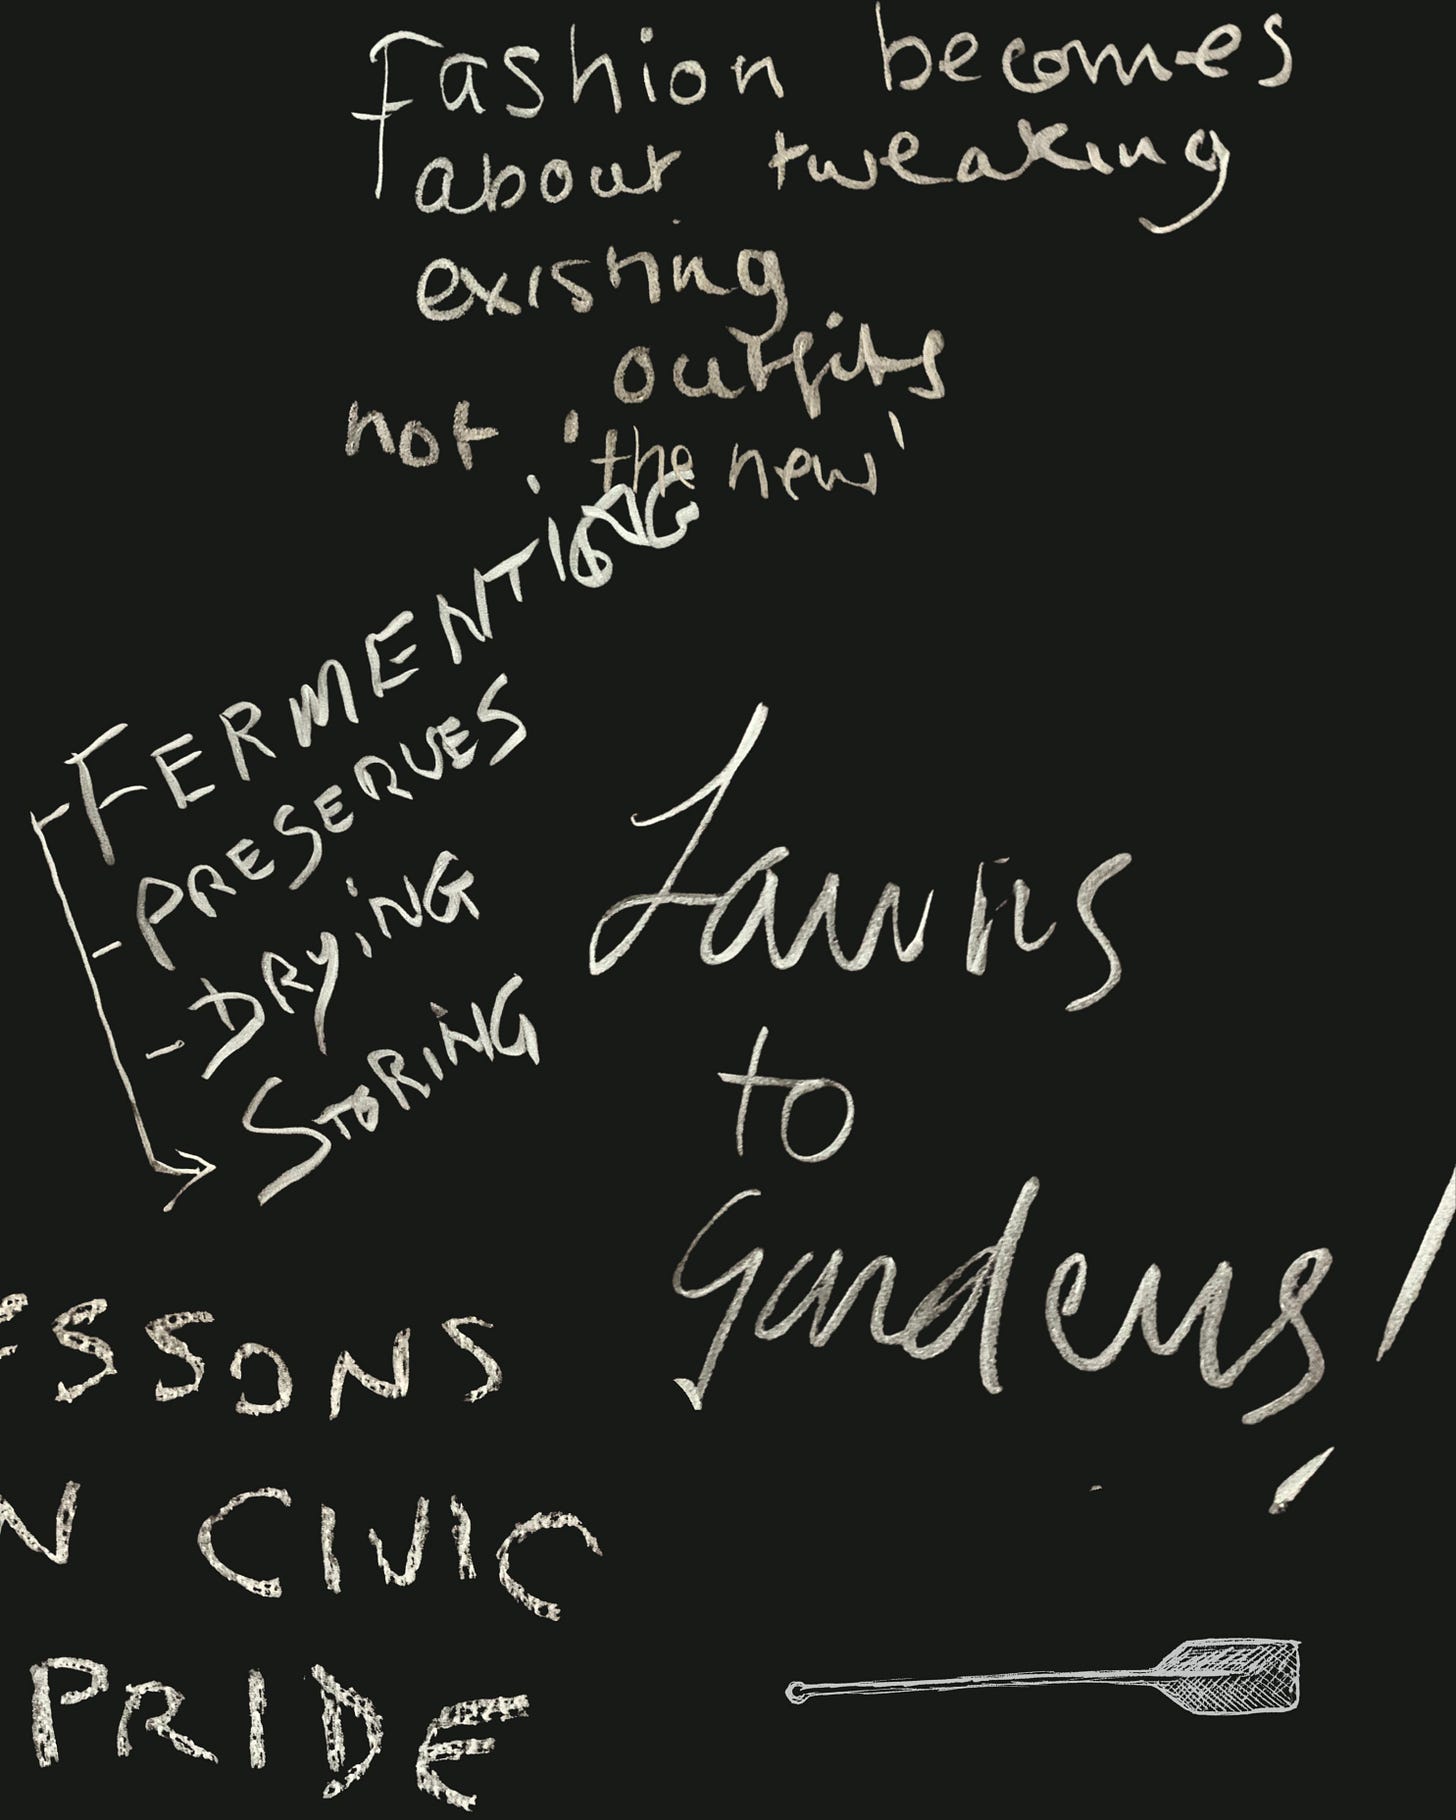 Fashion becomes
about tweaking
existing
outfits
not 'the new'
FERMENTING
PRESERVES
DRYING
STORING
Lawns
to
Gardens!
ESSONS
N CIVIC
PRIDE